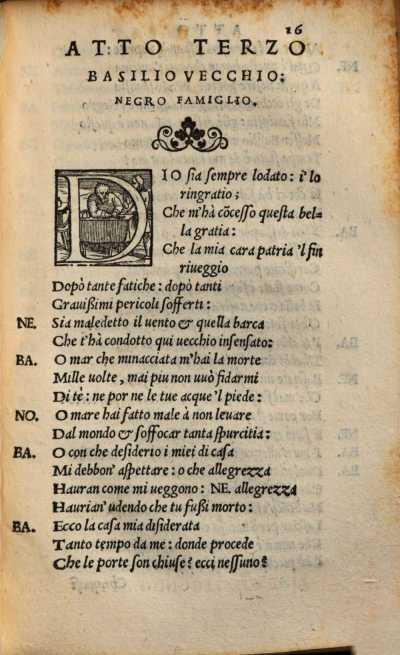 16
ATTO TERZO
BASILIO VECCHIO;
NEGRO FAMIGLIO.
DIO sia sempre lodato: i'lo
ringratio;
Che m'hà cõcesso questa bel-
la gratia:
Che la mia cara patria 'l fin
riueggio
Dopò tante fatiche: dopò tanti
Grauißimi pericoli sofferti:
NE. Sia maledetto il uento & quella barca
Che t'hà condotto qui uecchio insensato:
BA. O mar che minacciata m'hai la morte
Mille uolte, mai piu non uuò fidarmi
Di tè: ne por ne le tue acque 'l piede:
NO. O mare hai fatto male à non leuare
Dal mondo & soffocar tanta spurcitia:
BA. O con che desiderio i miei di casa
Mi debbon' aspettare: o che allegrezza
Hauran come mi ueggono: NE. allegrezza
Haurian' udendo che tu fußi morto:
BA. Ecco la casa mia disiderata
Tanto tempo da me: donde procede
Che le porte son chiuse? ecci nessuno?